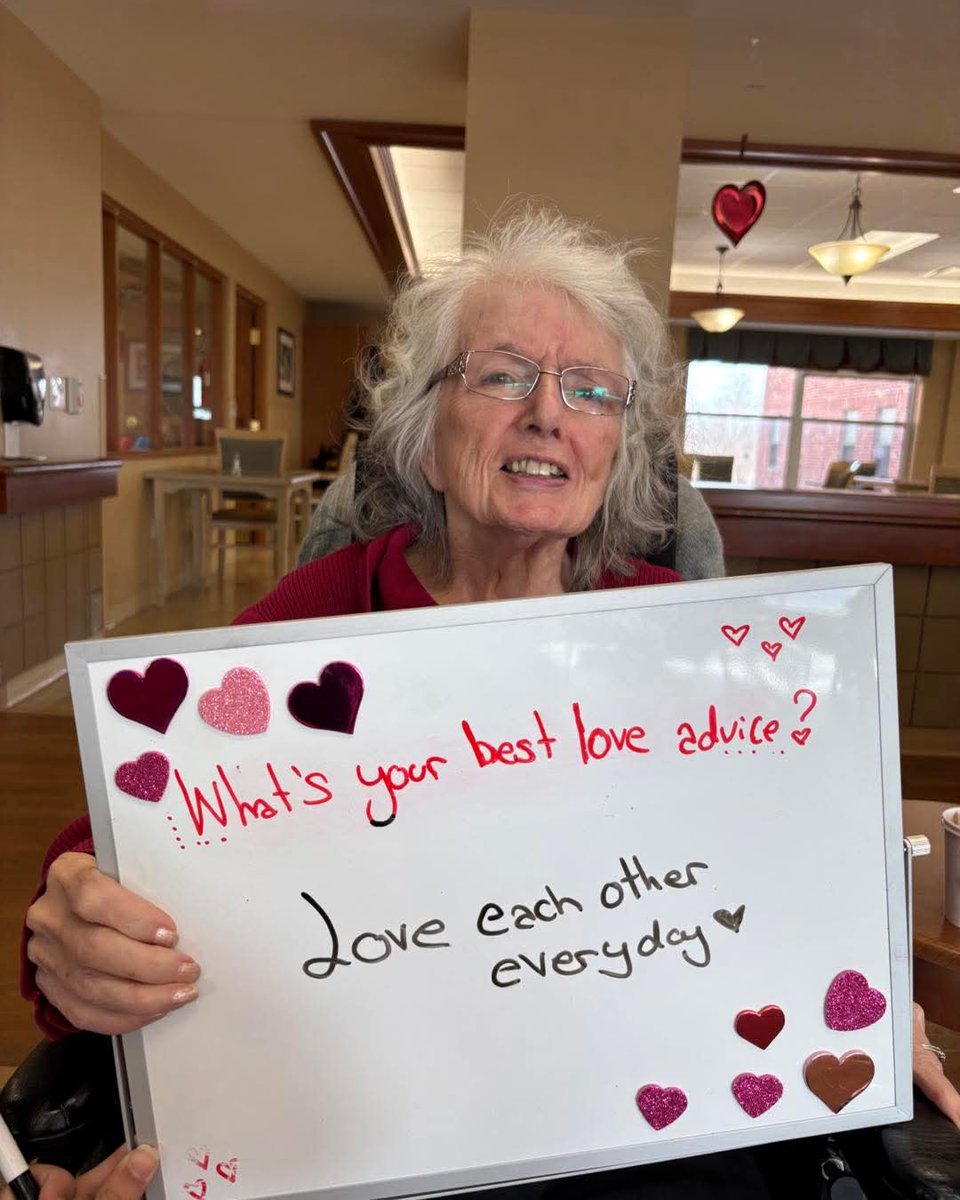 What's your best love advice?
Love each other
everyday